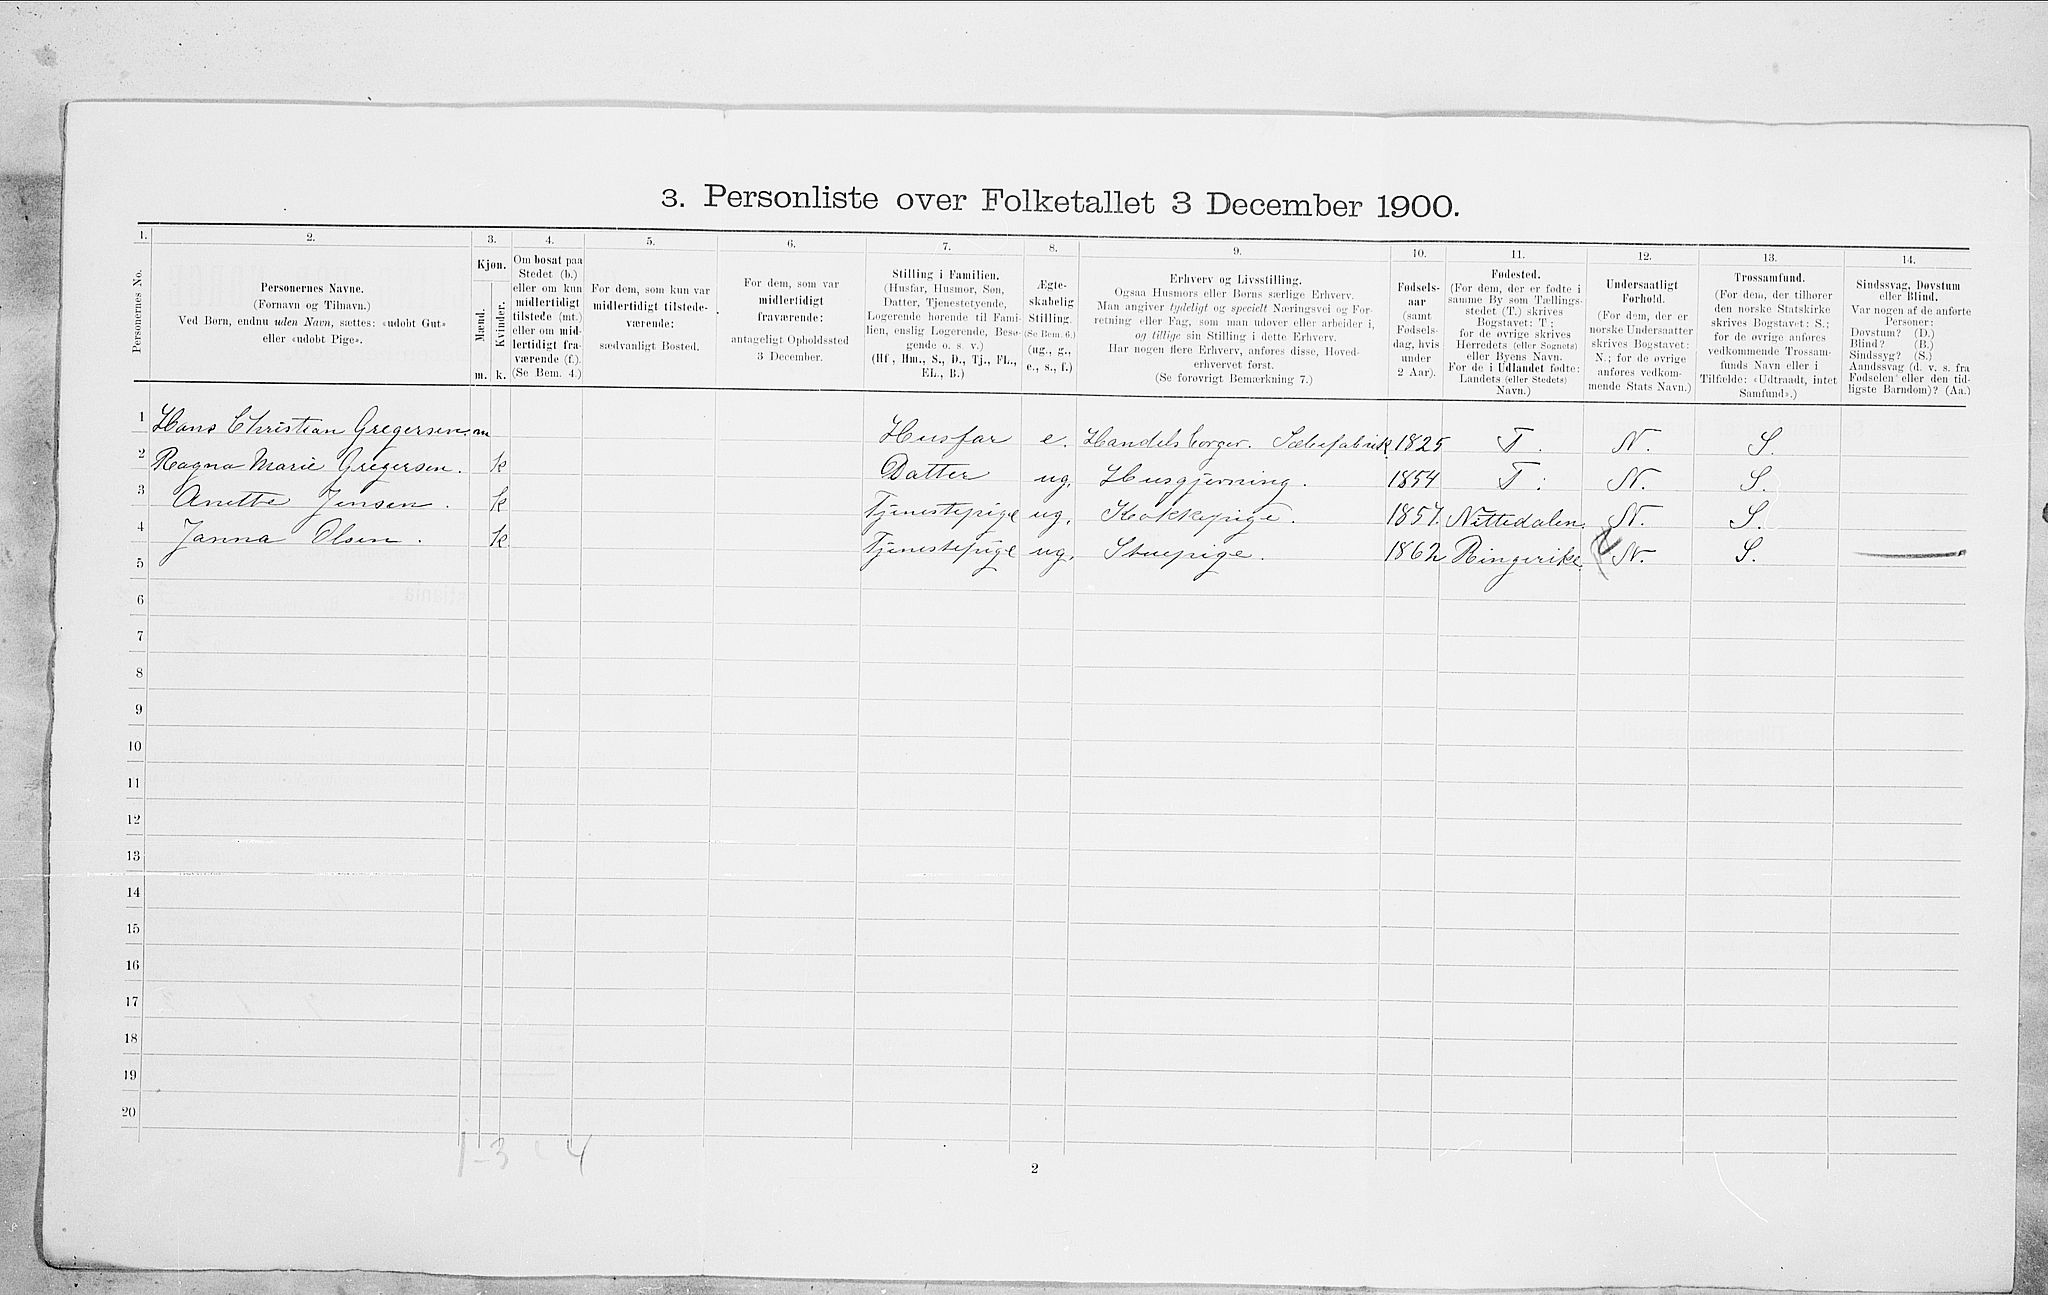 3. Personliste over Folketallet 3 December 1900.
1. 2. 3. 4. 5. 6. 7. 8. 9. 10. 11. 12. 13. 14.
Personernes No.
Personernes Navne.
(Fornavn og Tilnavn.)
Ved Børn, endnu uden Navn, sættes: «udøbt Gut»
eller «udøbt Pige».
Kjøn.
Mænd.
Kvinder.
m. k.
Om bosat paa
Stedet (b.)
eller om kun
midlertidigt
tilstede (mt.)
eller om mid-
lertidigt fra-
værende (f.).
(Se Bem. 4.)
For dem, som kun var
midlertidigt tilstede-
værende:
sædvanligt Bosted.
For dem, som var
midlertidigt
fraværende:
antageligt Opholdssted
3 December.
Stilling i Familien.
(Husfar, Husmor, Søn,
Datter, Tjenestetyende,
Logerende hørende til Fami-
lien, enslig Logerende, Besø-
gende o. s. v.)
(Hf., Hm., S., D., Tj., FL.,
EL., B.)
Ægte-
skabelig
Stilling.
(Se Bem. 6.)
(ug., g.,
e., s., f.)
Erhverv og Livsstilling.
Ogsaa Husmors eller Børns særlige Erhverv.
Man angiver tydeligt og specielt Næringsvei og For-
retning eller Fag, som man udøver eller arbeider i,
og tillige sin Stilling i dette Erhverv.
Har nogen flere Erhverv, anføres disse, Hoved-
erhvervet først.
(Se forøvrigt Bemærkning 7.)
Fødsels-
aar
(samt
Fødsels-
dag, hvis
under
2 Aar).
Fødested.
(For dem, der er fødte i
samme By som Tællings-
stedet (T.) skrives
Bogstavet: T;
for de øvrige skrives
Herredets (eller Sognets)
eller Byens Navn.
For de i Udlandet fødte:
Landets (eller Stedets)
Navn.)
Undersaatligt
Forhold.
(For dem, der er
norske Undersaatter
skrives Bogstavet:
N.; for de øvrige
anføres vedkom-
mende Stats Navn.)
Trossamfund.
(For dem, der tilhører
den norske Statskirke
skrives Bogstavet: S.;
for de øvrige anføres
vedkommende Trossam-
funds Navn eller i
Tilfælde: «Udtraadt, intet
Samfund».)
Sindssvag, Døvstum
eller Blind.
Var nogen af de anførte
Personer:
Døvstum? (D.)
Blind? (B.)
Sindssyg? (S.)
Aandssvag (d. v. s. fra
Fødselen eller den tid-
ligste Barndom)? (Aa.)
1 Hans Christian Gregersen. m Husfar e. Handelsborger. Sæbefabrik. 1825 T. N. S.
2 Ragna Marie Gregersen. k Datter ug. Husgjerning. 1854 T. N. S.
3 Anette Jensen. k Tjenestepige ug. Kokkepige. 1857. Nittedalen. N. S.
4 Janna Olsen. k Tjenestepige ug. Stuepige. 1862 Ringerike. N. S.
5
6
7
8
9
10
11
12
13
14
15
16
17
18
19
20
1-3 4
2